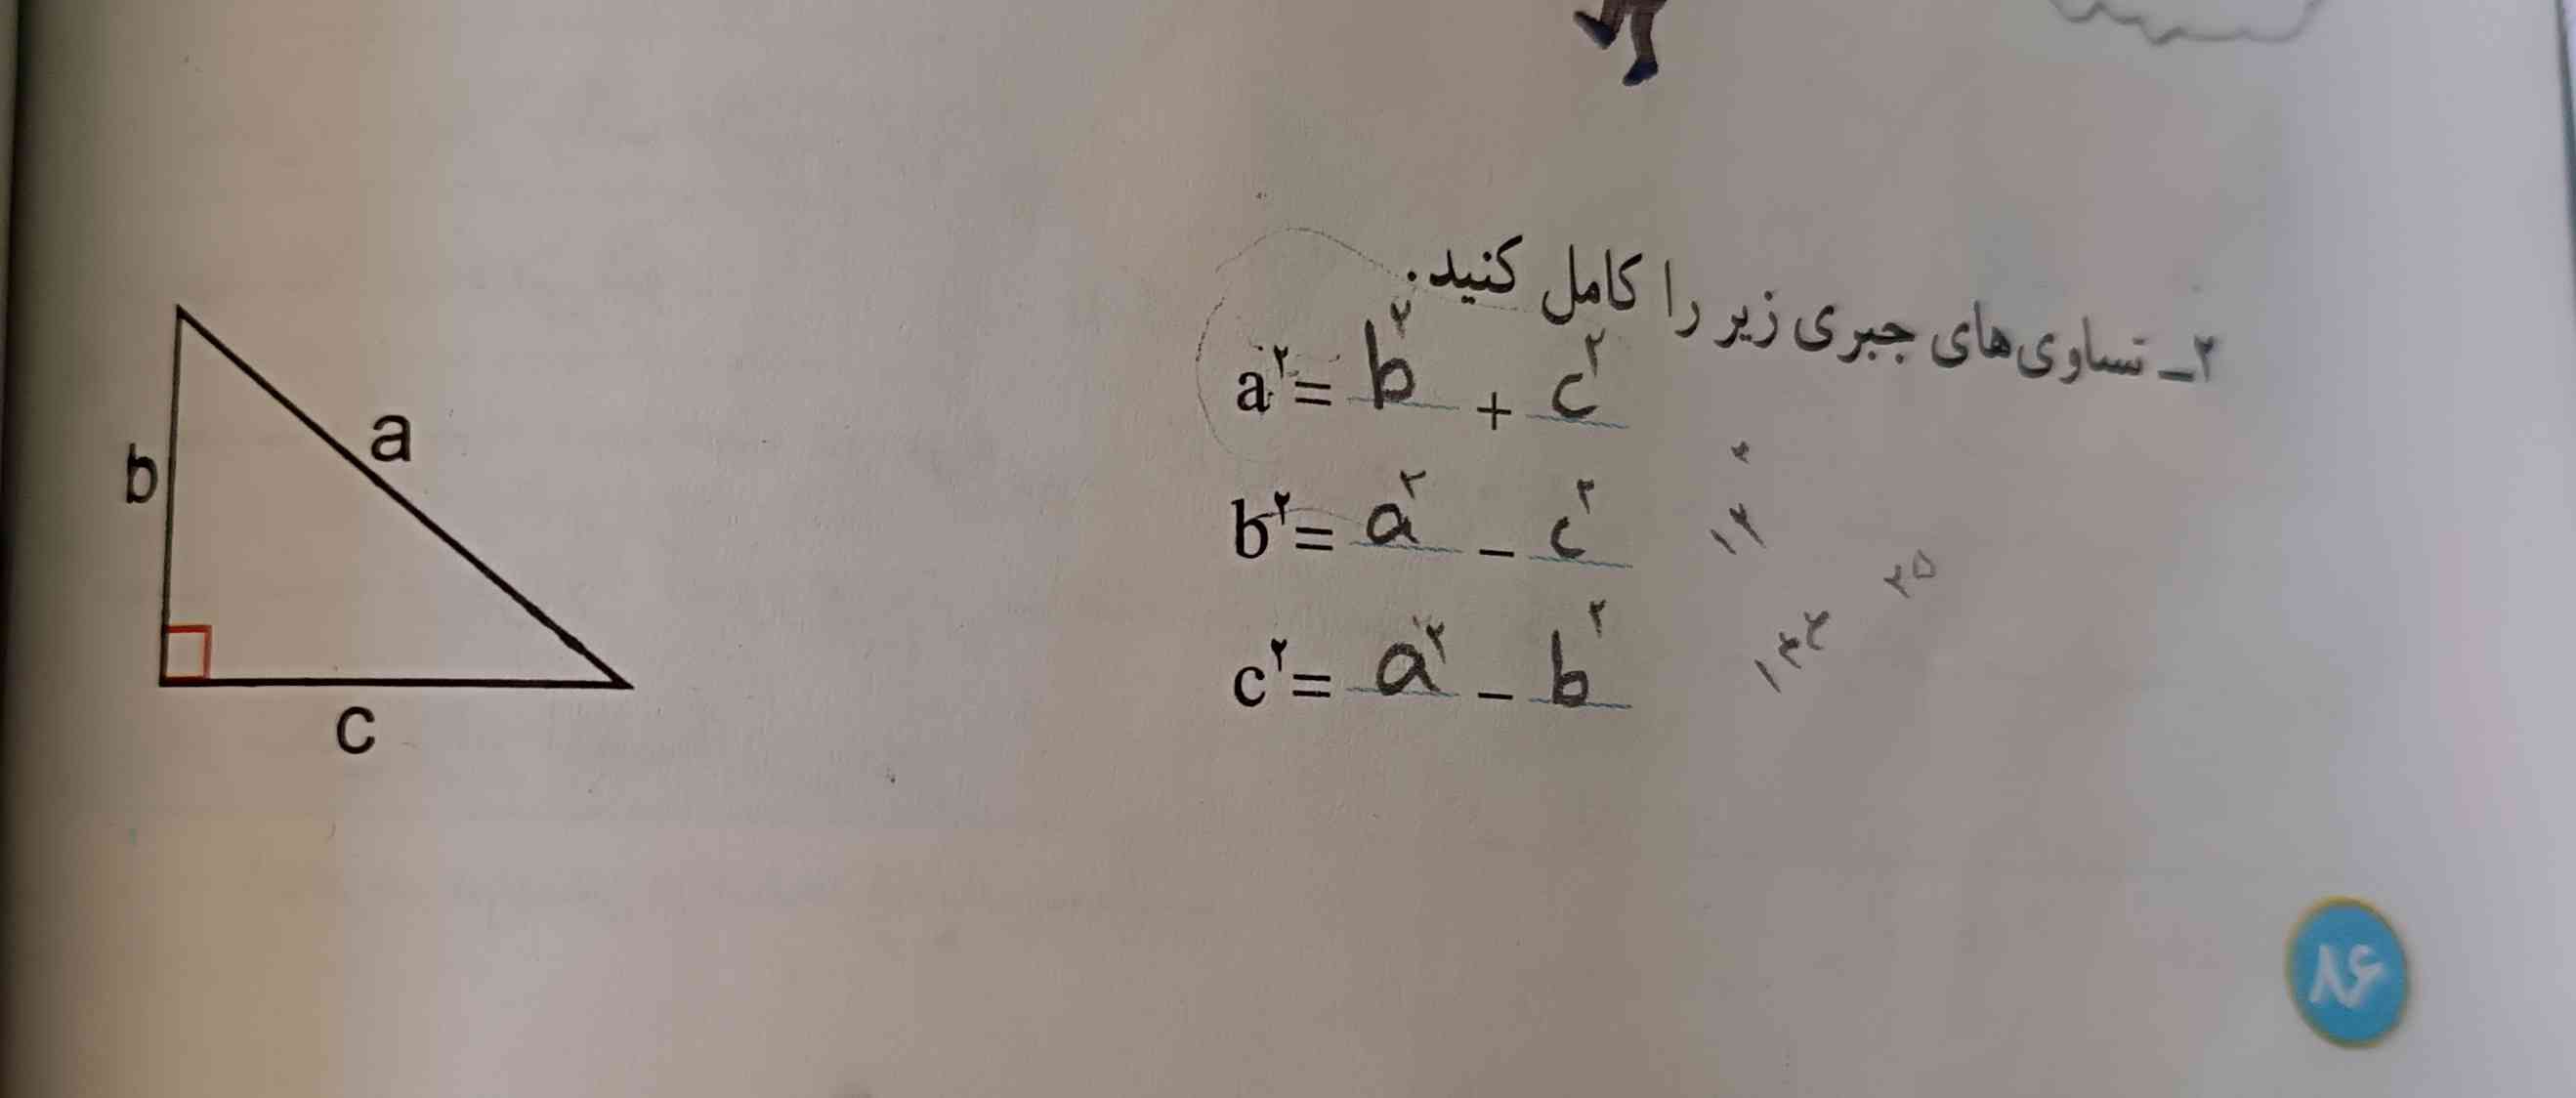 ۲ـ تساوی‌های جبری زیر را کامل کنید.
a۲ = b۲ + c۲
b۲ = a۲ - c۲
c۲ = a۲ - b۲
a
b
c
۱۲
۲۵
۸۶